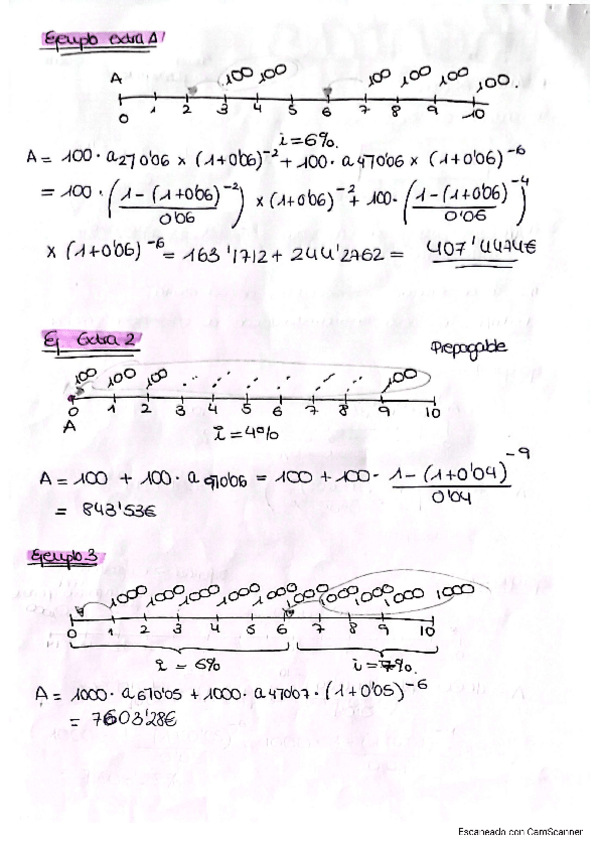 Ejemplo extra 1
A 100 100 100 100 100 100.
0 1 2 3 4 5 6 7 8 9 10
i=6%.
A = 100 · a 2┐0'06 × (1+0'06)^-2 + 100 · a 4┐0'06 × (1+0'06)^-6
= 100 · ( (1-(1+0'06)^-2) / 0'06 ) × (1+0'06)^-2 + 100 · ( (1-(1+0'06)^-4) / 0'06 )
× (1+0'06)^-6 = 163'1712 + 244'2762 = 407'4474€
Ej Extra 2
Prepagable
100 100 100 100
0 1 2 3 4 5 6 7 8 9 10
A
i=4%
A = 100 + 100 · a 9┐0'06 = 100 + 100 · (1-(1+0'04)^-9) / 0'04
= 843'53€
Ejemplo 3
1000 1000 1000 1000 1000 1000 1000 1000 1000 1000
0 1 2 3 4 5 6 7 8 9 10
i = 5% i=7%.
A = 1000 · a 6┐0'05 + 1000 · a 4┐0'07 · (1+0'05)^-6
= 7603'28€
Escaneado con CamScanner